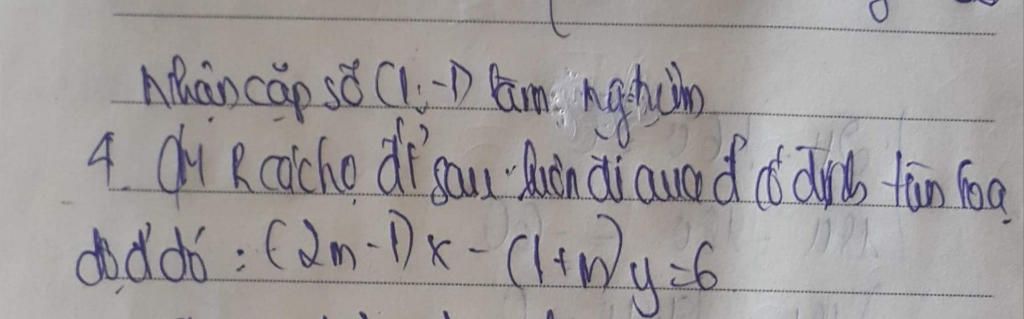 Nhận cặp số (1;-1) làm nghiệm
4. CM R các họ đt sau luôn đi qua đ cố định tìm toạ
độ đ đó : (2m-1)x - (1+m)y=6